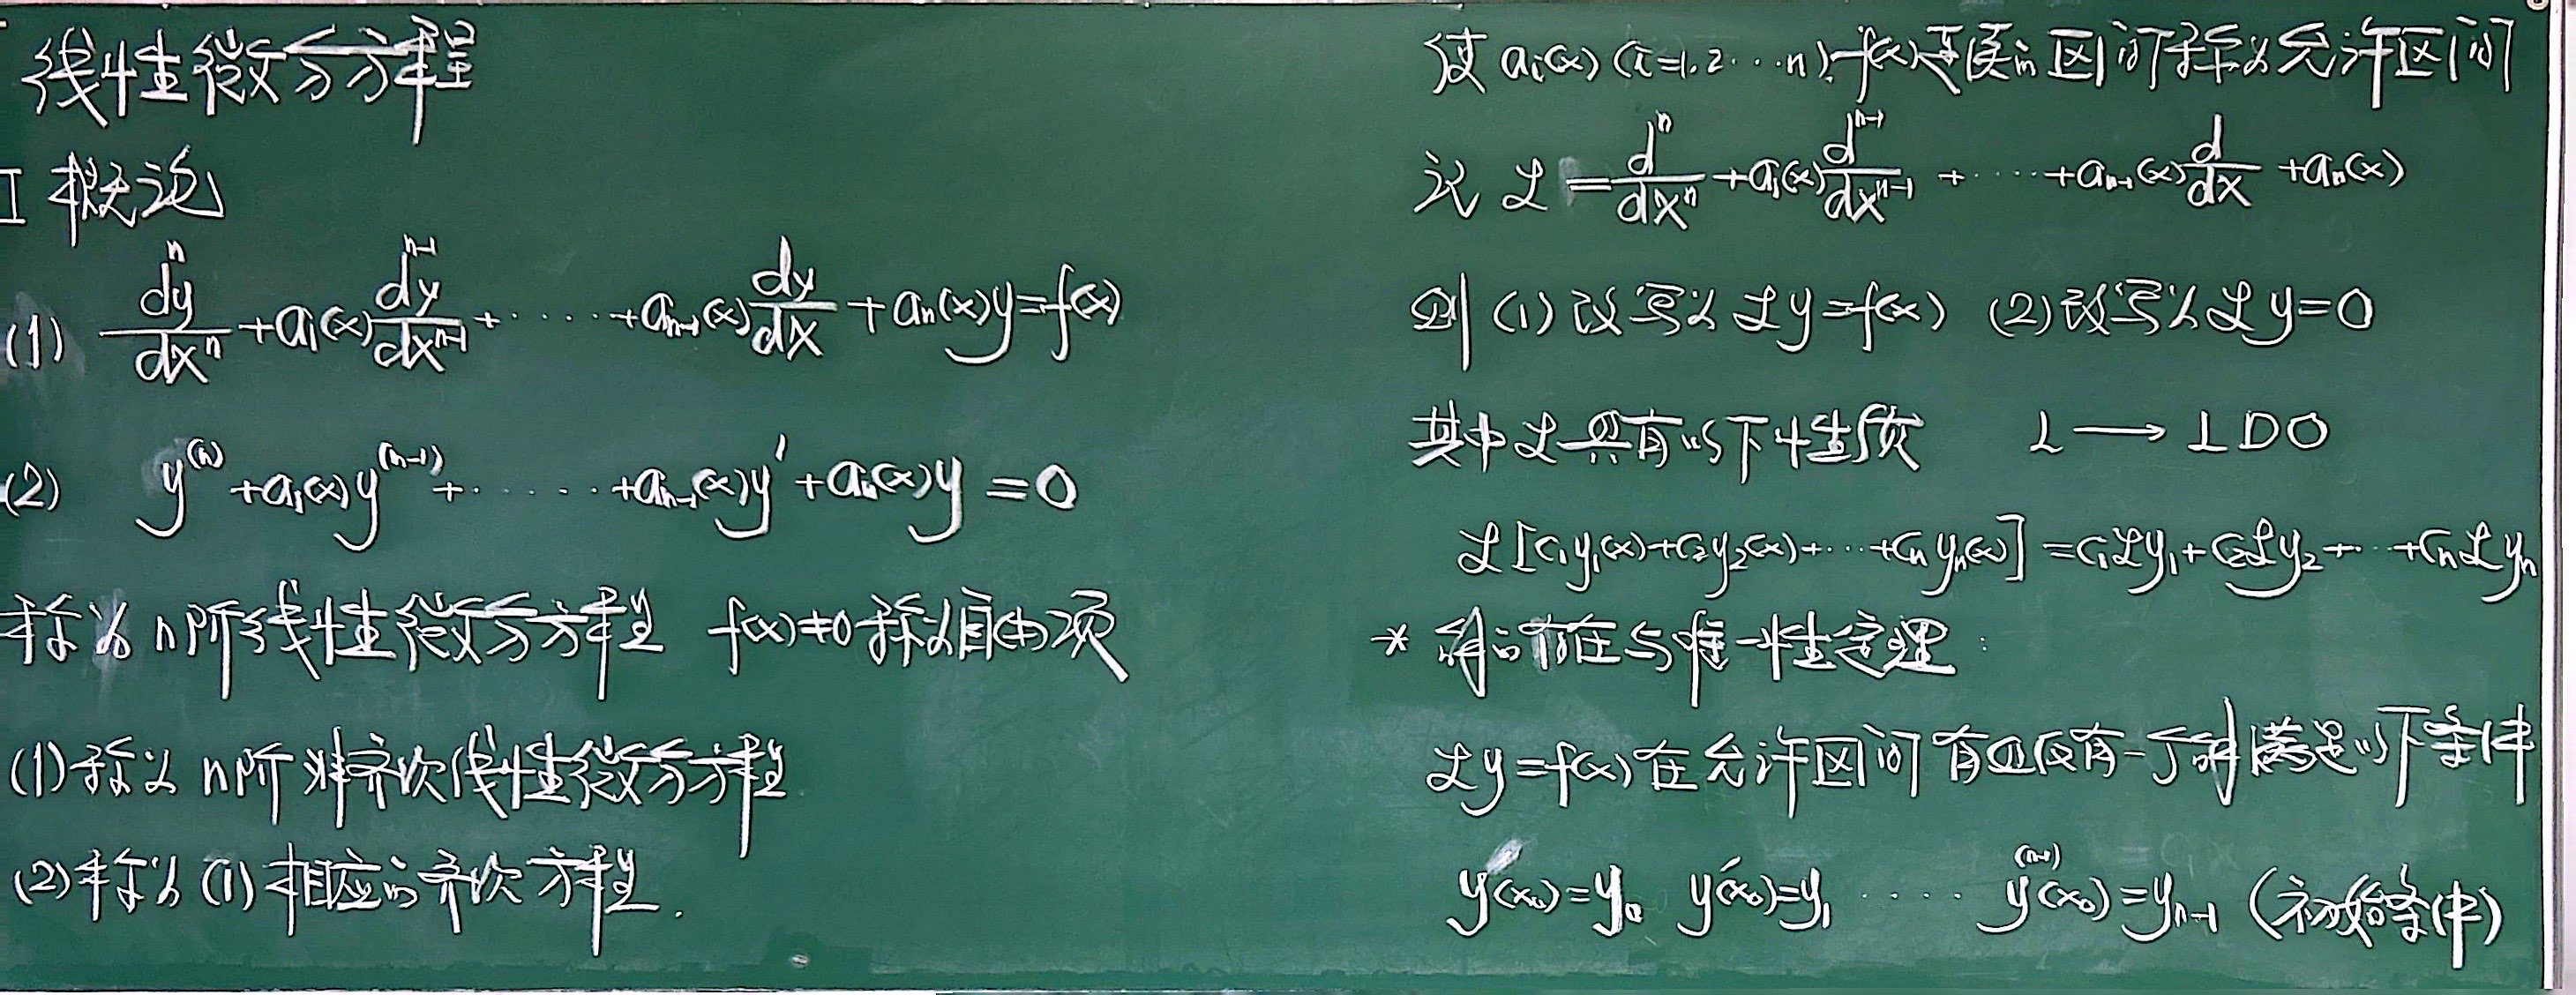 线性微分方程
I 概论
(1) dⁿy/dxⁿ + a₁(x) dⁿ⁻¹y/dxⁿ⁻¹ + ······ + aₙ₋₁(x) dy/dx + aₙ(x)y = f(x)
(2) y⁽ⁿ⁾ + a₁(x)y⁽ⁿ⁻¹⁾ + ······ + aₙ₋₁(x)y′ + aₙ(x)y = 0
称为 n阶线性微分方程 f(x)≠0 称为自由项
(1)称为 n阶非齐次线性微分方程
(2)称为 (1) 相应的齐次方程.
使 aᵢ(x) (i=1,2···n), f(x)连续的区间称为允许区间
记 ℒ = dⁿ/dxⁿ + a₁(x) dⁿ⁻¹/dxⁿ⁻¹ + ······ + aₙ₋₁(x) d/dx + aₙ(x)
则 (1) 改写为 ℒy = f(x) (2) 改写为 ℒy = 0
其中 ℒ 具有以下性质 L ⟶ LDO
ℒ[c₁y₁(x)+c₂y₂(x)+···+cₙyₙ(x)] = c₁ℒy₁+c₂ℒy₂+···+cₙℒyₙ
* 解的存在与唯一性定理:
ℒy = f(x) 在允许区间有且仅有一个解满足以下条件
y(x₀)=y₀ y′(x₀)=y₁ ····· y⁽ⁿ⁻¹⁾(x₀)=yₙ₋₁ (初始条件)